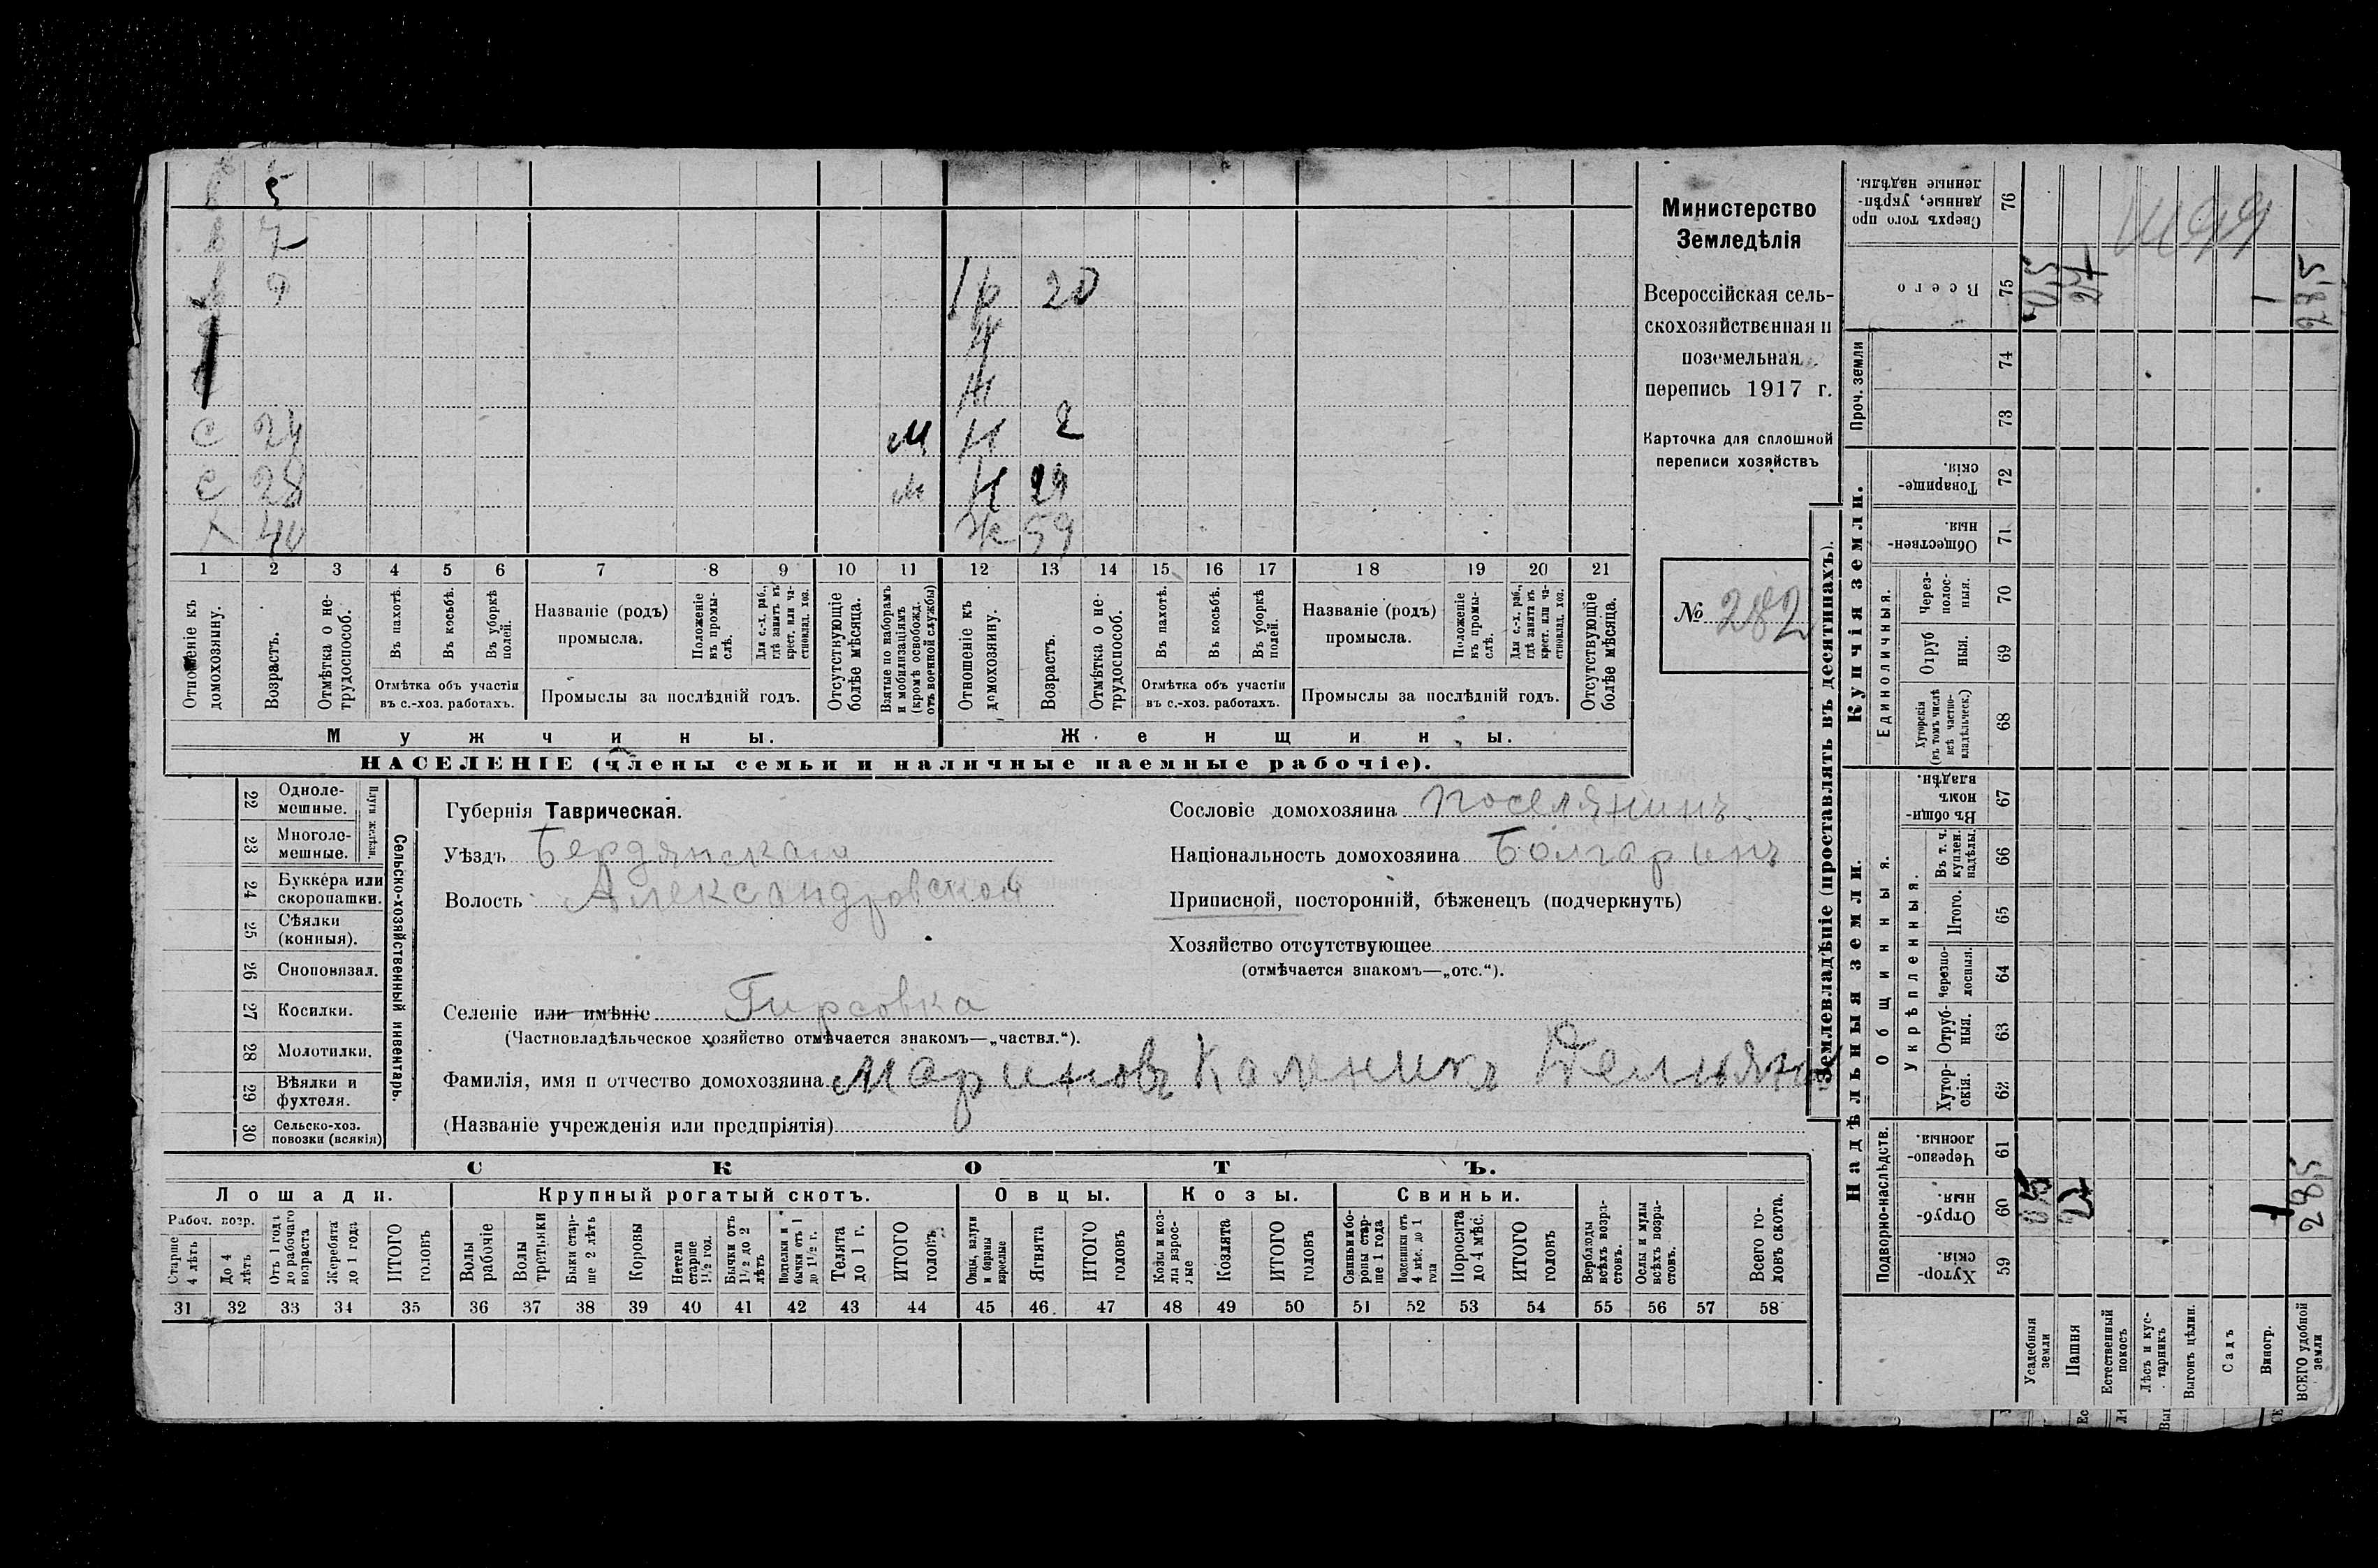 Министерство
Земледѣлія
Всероссійская сель-
скохозяйственная и
поземельная
перепись 1917 г.
Карточка для сплошной
переписи хозяйствъ
№ 282
5
7
9
20
С 24 М Н 2
С 28 М Н 29
Х 40 Ж 59
1 2 3 4 5 6 7 8 9 10 11 12 13 14 15 16 17 18 19 20 21
Отношеніе къ домохозяину.
Возрастъ.
Отмѣтка о не-трудоспособ.
Въ пахотѣ.
Въ косьбѣ.
Въ уборкѣ полей.
Отмѣтка объ участіи
въ с.-хоз. работахъ.
Названіе (родъ)
промысла.
Положеніе въ промы-слѣ.
Для с.-х. раб., гдѣ занятъ въ крест. или ча-стновлад. хоз.
Промыслы за послѣдній годъ.
Отсутствующіе болѣе мѣсяца.
Взятые по наборамъ и мобилизаціямъ (кромѣ освобожд. отъ военной службы)
Отношеніе къ домохозяину.
Возрастъ.
Отмѣтка о не-трудоспособ.
Въ пахотѣ.
Въ косьбѣ.
Въ уборкѣ полей.
Отмѣтка объ участіи
въ с.-хоз. работахъ.
Названіе (родъ)
промысла.
Положеніе въ промы-слѣ.
Для с.-х. раб., гдѣ занята въ крест. или ча-стновлад. хоз.
Промыслы за послѣдній годъ.
Отсутствующіе болѣе мѣсяца.
Мужчины. Женщины.
НАСЕЛЕНІЕ (члены семьи и наличные наемные рабочіе).
Сельско-хозяйственный инвентарь.
Плуги желѣзн.
22 Одноле-мешные.
23 Многоле-мешные.
24 Буккера или скоропашки.
25 Сѣялки (конныя).
26 Сноповязал.
27 Косилки.
28 Молотилки.
29 Вѣялки и фухтеля.
30 Сельско-хоз. повозки (всякія)
Губернія Таврическая.
Уѣздъ Бердянскаго
Волость Александровской
Сословіе домохозяина Поселянинъ
Національность домохозяина Болгаринъ
Приписной, посторонній, бѣженецъ (подчеркнуть)
Хозяйство отсутствующее
(отмѣчается знакомъ—„отс.“).
Селеніе или имѣніе Гирсовка
(Частновладѣльческое хозяйство отмѣчается знакомъ—„частвл.“).
Фамилія, имя и отчество домохозяина Мариновъ Каленикъ
(Названіе учрежденія или предпріятія)
СКОТЪ.
Лошади. Крупный рогатый скотъ. Овцы. Козы. Свиньи.
Рабоч. возр.
Старше 4 лѣтъ
До 4 лѣтъ
Отъ 1 года до рабочаго возраста
Жеребята до 1 года
ИТОГО головъ
Волы рабочіе
Волы третьяки
Быки стар-ше 2 лѣтъ
Коровы
Нетели старше 1½ год.
Бычки отъ 1½ до 2 лѣтъ
Подтелки и бычки отъ 1 до 1½ г.
Телята до 1 г.
ИТОГО головъ
Овцы, валухи и бараны взрослые
Ягнята
ИТОГО головъ
Козы и коз-лы взрос-лые
Козлята
ИТОГО головъ
Свиньи и бо-ровы стар-ше 1 года
Подсвинки отъ 4 мѣс. до 1 года
Поросята до 4 мѣс.
ИТОГО головъ
Верблюды всѣхъ возра-стовъ.
Ослы и мулы всѣхъ возра-стовъ.
Всего го-ловъ скота.
31 32 33 34 35 36 37 38 39 40 41 42 43 44 45 46 47 48 49 50 51 52 53 54 55 56 57 58
Землевладѣніе (проставлять въ десятинахъ).
Надѣльныя земли.
Купчія земли.
Проч. земли
Подворно-наслѣдств.
Общинныя.
Укрѣпленныя.
Единоличныя.
Хутор-скія. 59
Отруб-ныя. 60
Черезпо-лосныя. 61
Хутор-скія. 62
Отруб-ныя. 63
Черезпо-лосныя. 64
Итого. 65
Въ т. ч. куплен. надѣлы. 66
Въ общин-номъ владѣн. 67
Хуторскія (въ томъ числѣ всѣ частно-владѣльческ.) 68
Отруб ныя. 69
Через-полос-ныя. 70
Обществен-ныя. 71
Товарище-скія. 72
73
74
Всего 75
Сверхъ того про данные, укрѣп-ленные надѣлы. 76
Усадебныя земли 0,5
Пашня 27 27
Естественный покосъ
Лѣсъ и кус-тарникъ
Выгонъ цѣлин.
Садъ
Виногр. 1 1
ВСЕГО удобной земли 28,5 28,5